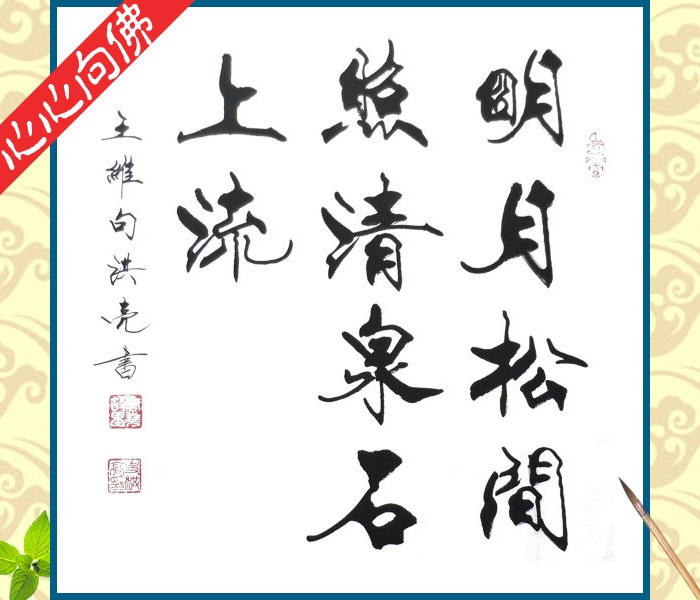 心心向佛
明月松間
照清泉石
上流
王維句洪亮書